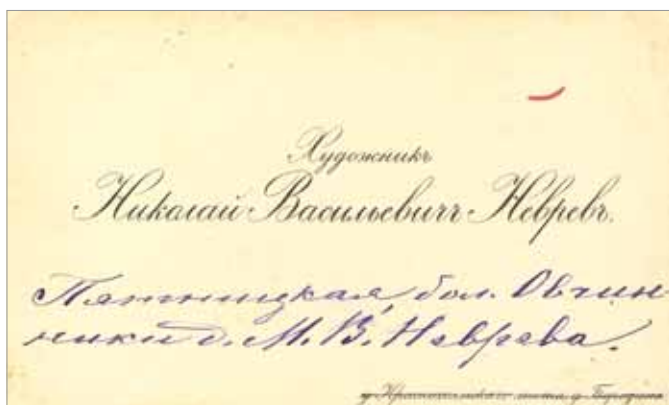 Художникъ
Николай Васильевичъ Невревъ.
Пятницкая, бол. Овчин-
ники д. М. В. Неврева.
д.